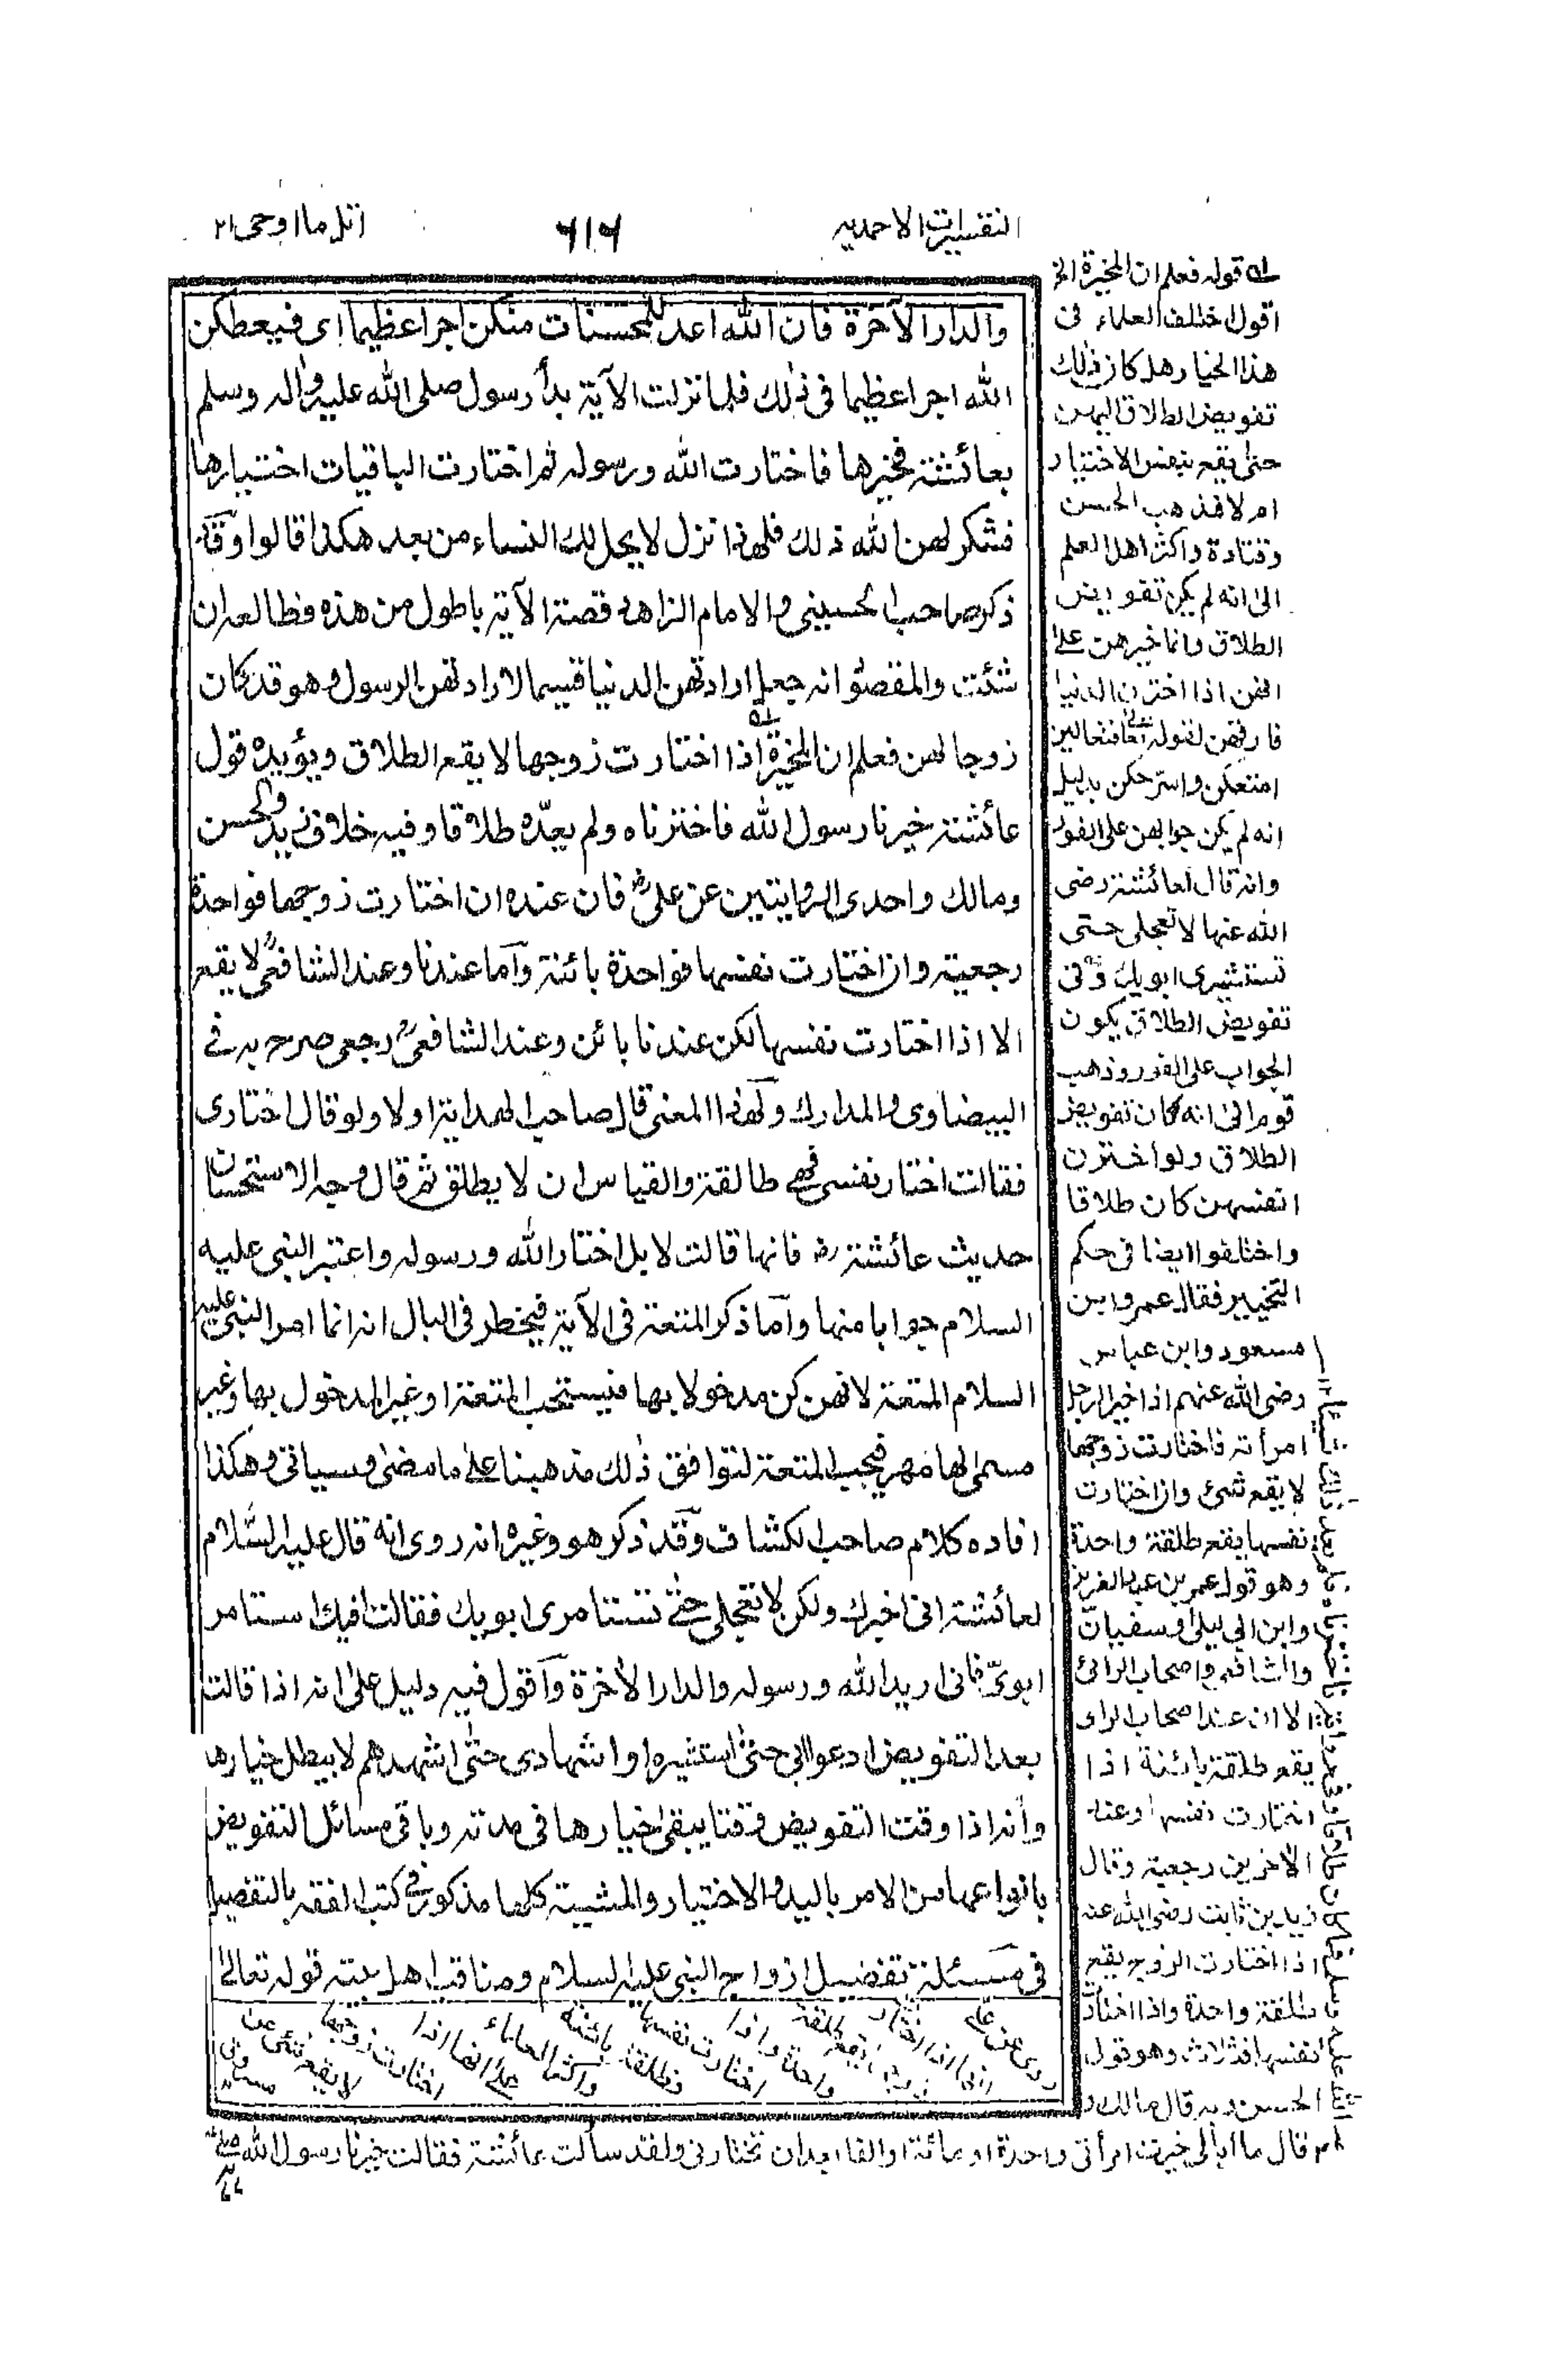 التفسيرات الاحمديه
٦١٦
اتل ما اوحى ٢١
والدار الآخرة فان الله اعد للمحسنات منكن اجرا عظيما اى فيعطكن
الله اجرا عظيما فى ذلك فلما نزلت الآية بدأ رسول صلى الله عليه واله وسلم
بعائشة فخيرها فاختارت الله ورسوله ثم اختارت الباقيات اختيارها
فشكر لهن الله ذلك فلهذا نزل لا يحل لك النساء من بعد هكذا قالوا وقد
ذكر صاحب الحسينى والامام الزاهد قصة الآية باطول من هذه فطالعه ان
شئت والمقصود انه جعل ارادتهن الدنيا قسيما لارادتهن الرسول وهو قد كان
زوجا لهن فعلم ان المخيرة اذا اختارت زوجها لا يقع الطلاق ويؤيده قول
عائشة خيرنا رسول الله فاخترناه ولم يعدّه طلاقا وفيه خلاف زيد والحسن
ومالك واحدى الروايتين عن على رض فان عنده ان اختارت زوجها فواحدة
رجعية وان اختارت نفسها فواحدة بائنة وآما عندنا وعند الشافعى لا يقع
الا اذا اختارت نفسها لكن عندنا بائن وعند الشافعى رجعى صرح به فى
البيضاوى والمدارك ولهذا المعنى قال صاحب الهداية اولا ولو قال اختارى
فقالت اختار نفسى فهى طالقة والقياس ان لا يطلق ثم قال وجه الاستحسان
حديث عائشة رض فانها قالت لا بل اختار الله ورسوله واعتبر النبى عليه
السلام جوابا منها وآما ذكر المتعة فى الآية فيخطر فى البال انه انما امر النبى عليه
السلام المتعة لانهن كن مدخولا بها فيستحب المتعة او غير المدخول بها وغير
مسمى لها مهر فيجب المتعة لتوافق ذلك مذهبنا على ما مضى وسيأتى وهكذا
افاده كلام صاحب الكشاف وقد ذكر هو وغيره انه روى انه قال عليه السلام
لعائشة انى اخيرك ولكن لا تعجلى حتى تستامرى ابويك فقالت افيك استامر
ابوىّ فانى اريد الله ورسوله والدار الآخرة وآقول فيه دليل على انه اذا قالت
بعد التفويض ادعوا ابى حتى استشيره او اشهادى حتى اشهدهم لا يبطل خيارها
وأنه اذا وقت التفويض وقتا يبقى خيارها فى مدته وباقى مسائل التفويض
بانواعها من الامر باليد والاختيار والمشيئة كلها مذكور فى كتب الفقه بالتفصيل
فى مسئلة تفضيل ازواج النبى عليه السلام ومناقب اهل بيته قوله تعالى
له قوله فعلم ان المخيرة الخ
اقول اختلف العلماء فى
هذا الخيار هل كان ذلك
تفويض الطلاق اليهن
حتى يقع بنفس الاختيار
ام لا فذهب الحسن
وقتادة واكثر اهل العلم
الى انه لم يكن تفويض
الطلاق وانما خيرهن على
انهن اذا اخترن الدنيا
فارقهن لقوله تعالى فتعالين
امتعكن واسرحكن بدليل
انه لم يكن جوابهن على الفور
وانه قال لعائشة رضى
الله عنها لا تعجلى حتى
تستشيرى ابويك وفى
تفويض الطلاق يكون
الجواب على الفور وذهب
قوم الى انه كان تفويض
الطلاق ولو اخترن
انفسهن كان طلاقا
واختلفوا ايضا فى حكم
التخيير فقال عمر وابن
مسعود وابن عباس
رضى الله عنهم اذا خير الرجل
امرأته فاختارت زوجها
لا يقع شئ وان اختارت
نفسها يقع طلقة واحدة
وهو قول عمر بن عبد العزيز
وابن ابى ليلى وسفيان
والشافعى واصحاب الرائ
الا ان عند اصحاب الراى
يقع طلقة بائنة اذا
اختارت نفسها وعند
الآخرين رجعية وقال
زيد بن ثابت رضى الله عنه
اذا اختارت الزوج يقع
طلقة واحدة واذا اختارت
نفسها فثلاث وهو قول
الحسن وبه قال مالك و
روى عن على
انها اذا اختارت
زوجها تقع طلقة
واحدة واذا
اختارت نفسها
فطلقة بائنة
واكثر العلماء
على انها اذا
اختارت زوجها
لا يقع شئ عن
قال ما ابالى خيرت امرأتى واحدة او مائة او الفا بعد ان تختارنى ولقد سألت عائشة فقالت خيرنا رسول الله